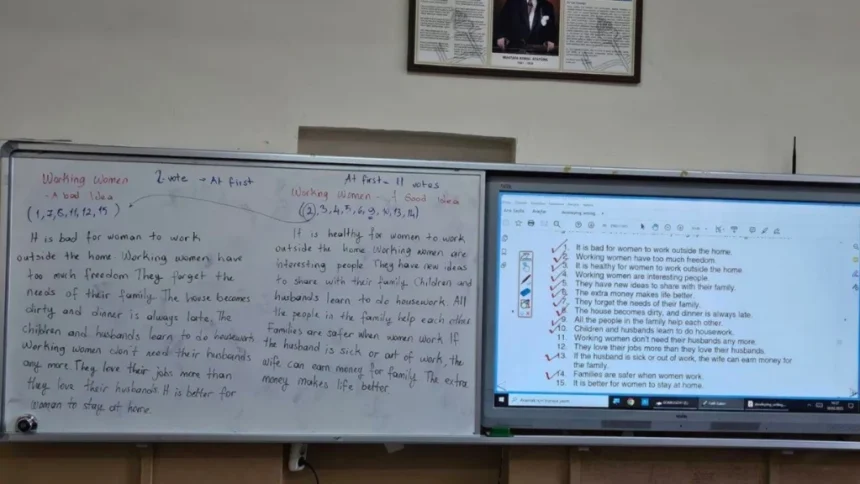 MUSTAFA KEMAL ATATÜRK
Working Women 2 vote → At first
- A bad idea
(1,7,8,11,12,15)
It is bad for woman to work
outside the home. Working women have
too much freedom They forget the
needs of their family. The house becomes
dirty and dinner is always late. The
children and husbands learn to do housework
Working women don't need their husbands
any more. They love their jobs more than
they love their husbands It is better for
woman to stay at home.
At first = 11 votes
Working Women - A Good idea
(2,3,4,5,6,9,10,13,14)
It is healthy for women to work
outside the home. Working women are
interesting people. They have new ideas
to share with their family. Children and
husbands learn to do housework. All
the people in the family help each other
Families are safer when women work If
the husband is sick or out of work, the
wife can earn money for family. The extra
money makes life better
1. It is bad for women to work outside the home.
2. Working women have too much freedom.
3. It is healthy for women to work outside the home.
4. Working women are interesting people.
5. They have new ideas to share with their family.
6. The extra money makes life better.
7. They forget the needs of their family.
8. The house becomes dirty, and dinner is always late.
9. All the people in the family help each other.
10. Children and husbands learn to do housework.
11. Working women don't need their husbands any more.
12. They love their jobs more than they love their husbands.
13. If the husband is sick or out of work, the wife can earn money for
the family.
14. Families are safer when women work.
15. It is better for women to stay at home.